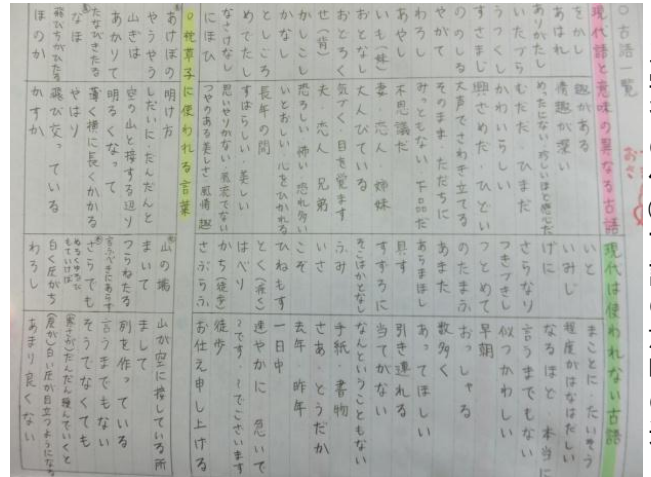 ○古語一覧
現代語と意味の異なる古語
をかし 趣がある
あはれ 情趣が深い
ありがたし めったにない 珍しいほど感心だ
いたづら むだだ ひまだ
うつくし かわいらしい
すさまじ 興ざめだ ひどい
ののしる 大声でさわぎ立てる
やがて そのまま ただちに
わろし みっともない 下品だ
あやし 不思議だ
いも(妹) 妻 恋人 姉妹
おとなし 大人びている
おどろく 気づく・目を覚ます
せ(背) 夫 恋人 兄弟
かしこし 恐ろしい 怖い 恐れ多い
かなし いとおしい・心をひかれる
としごろ 長年の間
めでたし すばらしい 美しい
なさけなし 思いやりがない
にほひ つやのある美しさ 風情 趣
現代は使われない古語
いと まことに たいそう
いみじ 程度がはなはだしい
げに なるほど 本当に
さらなり 言うまでもない
つきづきし 似つかわしい
つとめて 早朝
のたまふ おっしゃる
あまた 数多く
あらまほし あってほしい
具す 引き連れる
すずろに 当てがない
そこはかとなし なんということもない
ふみ 手紙・書物
いさ さあ どうだか
こぞ 去年 昨年
ひねもす 一日中
とく(疾く) 速やかに 急いで
はべり 〜です 〜でございます
かち(徒歩) 徒歩
さぶらふ お仕え申し上げる
○枕草子に使われる言葉
あけぼの 明け方
やうやう しだいに・だんだんと
山ぎは 空の山と接する辺り
あかりて 明るくなって
たなびきたる 薄く横に長くかかる
なほ やはり
飛びちがひたる 飛び交っている
ほのか かすか
山の端 山が空に接している所
まいて まして
つらねたる 列を作っている
言ふべきにあらず 言うまでもない
さらでも そうでなくても
ぬるくゆるびもていけば 寒さがだんだん緩んでいくと
白く灰がち (炭が)白い灰が目立つようになる
わろし あまり良くない